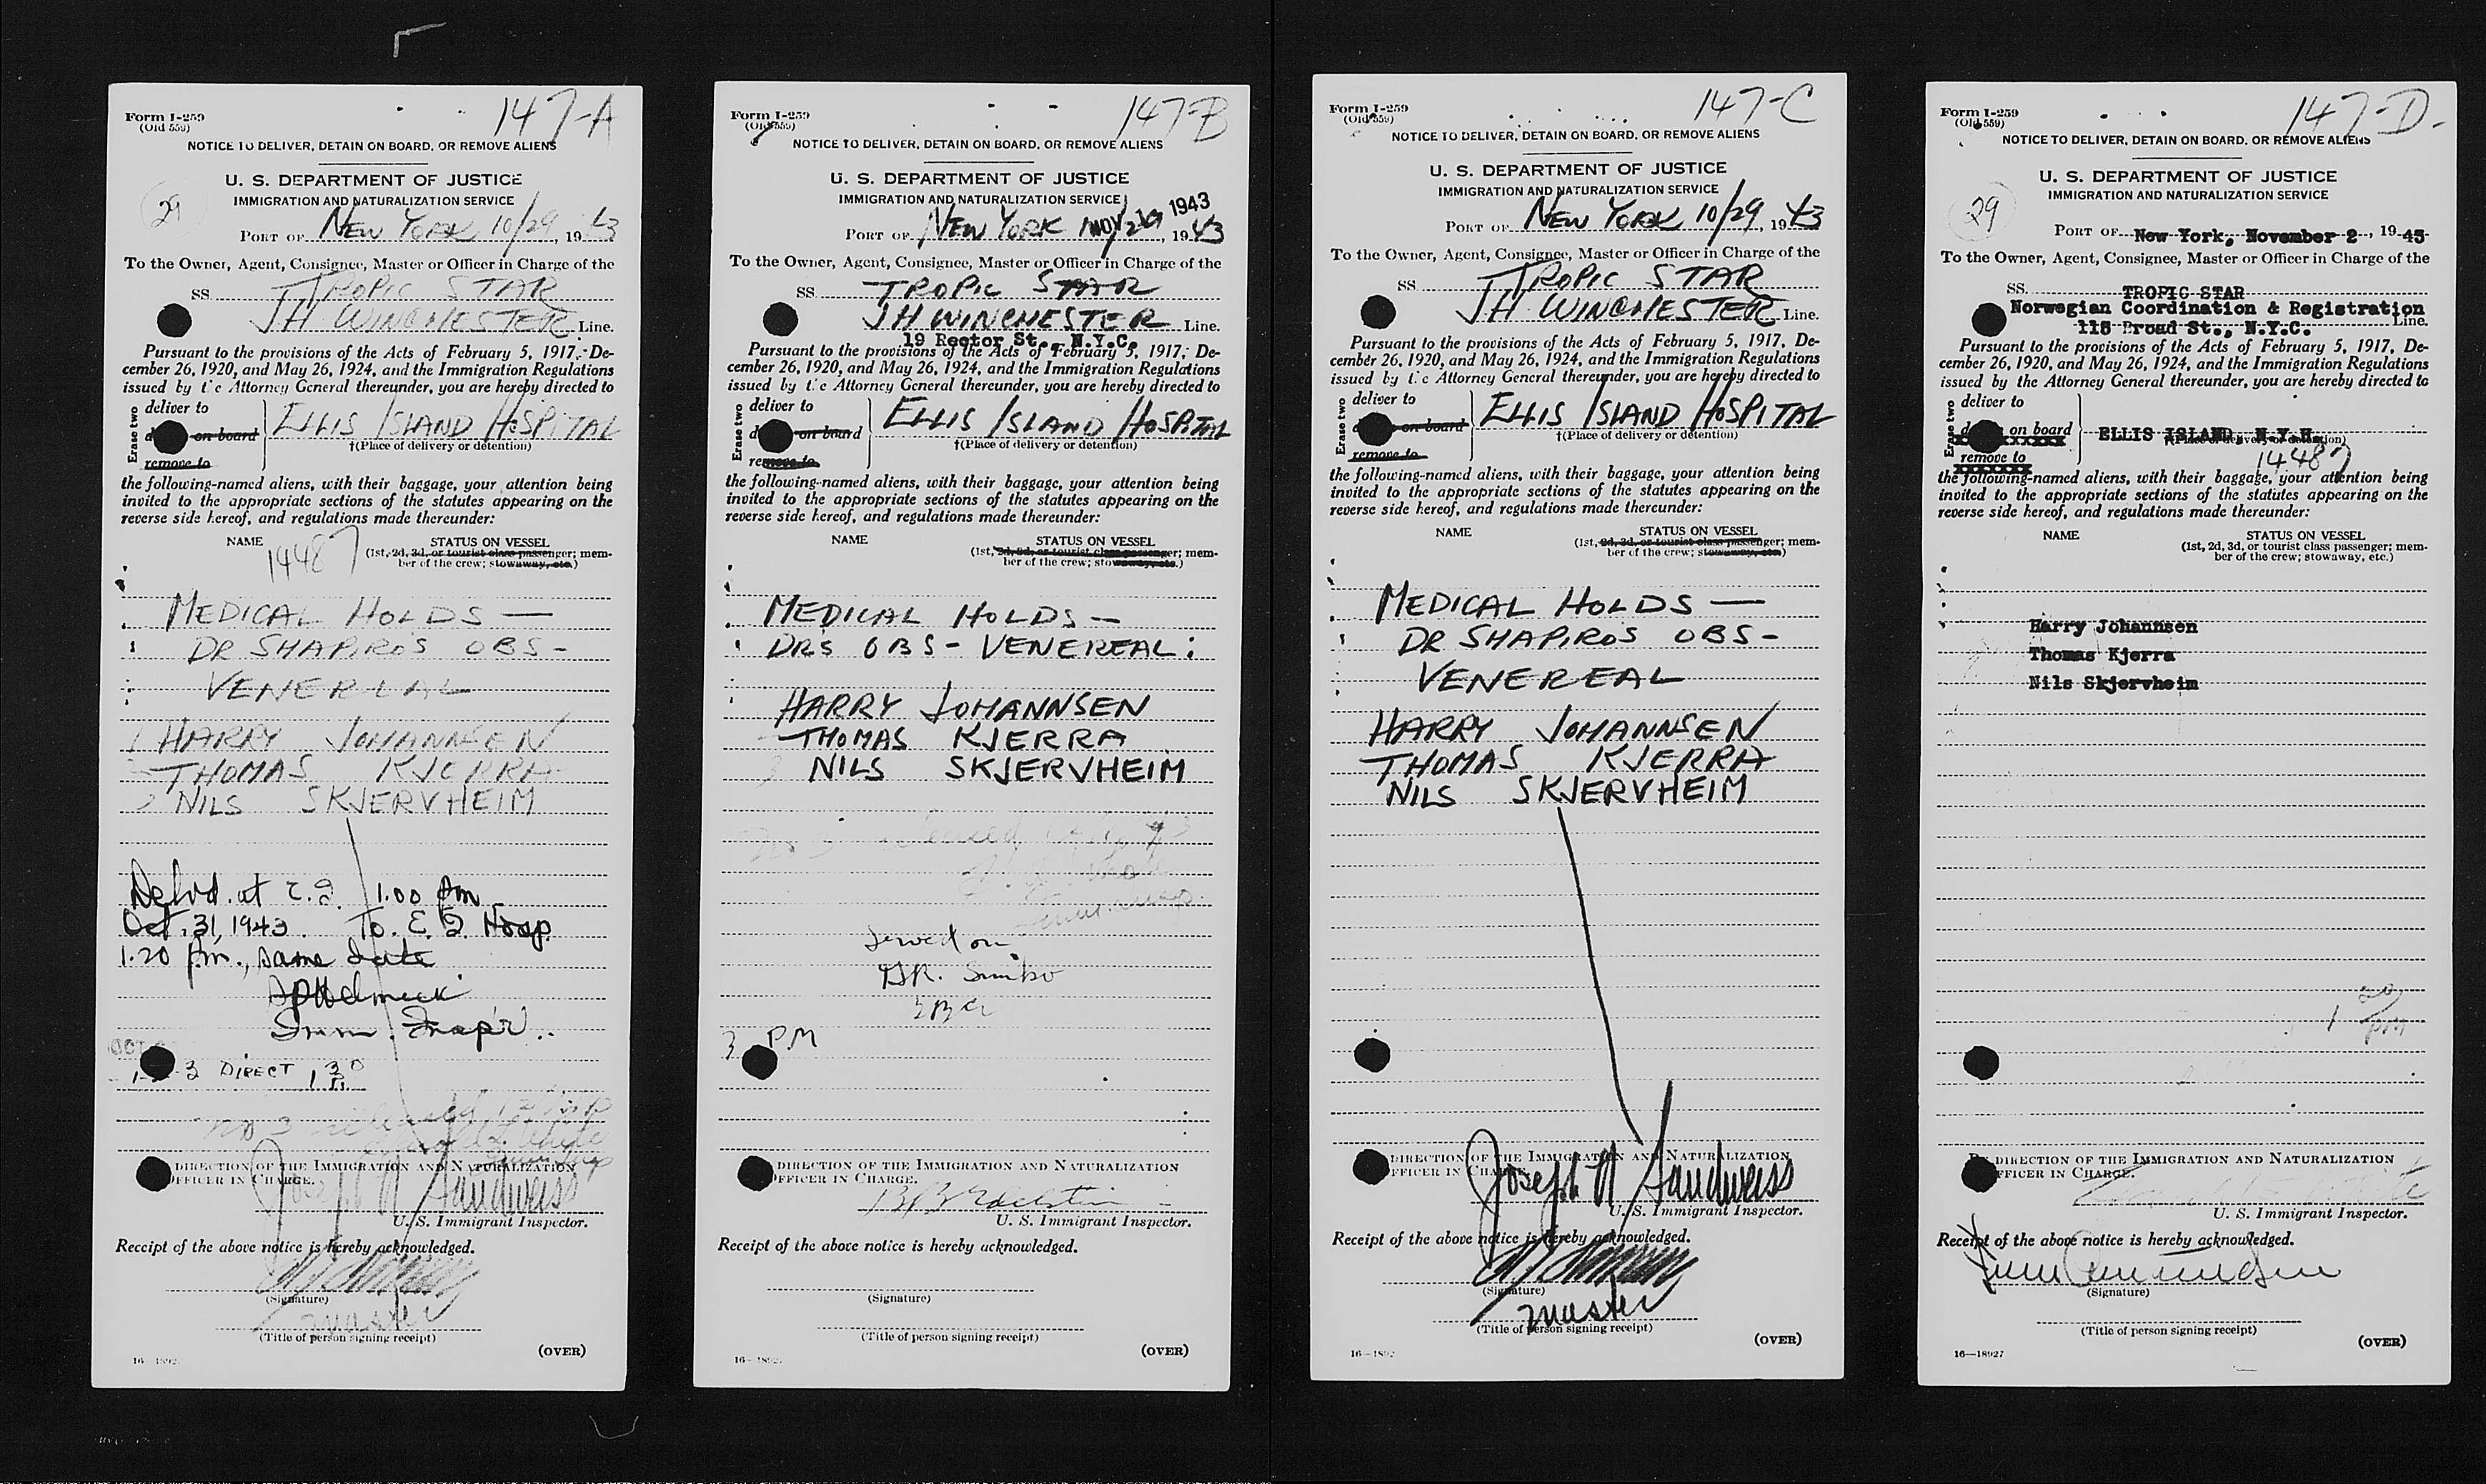 147-A
Form I-259
(Old 559)
NOTICE TO DELIVER, DETAIN ON BOARD, OR REMOVE ALIENS
U. S. DEPARTMENT OF JUSTICE
IMMIGRATION AND NATURALIZATION SERVICE
29
PORT OF NEW YORK 10/29, 1943
To the Owner, Agent, Consignee, Master or Officer in Charge of the
SS. TROPIC STAR
JH WINCHESTER Line.
Pursuant to the provisions of the Acts of February 5, 1917, De-
cember 26, 1920, and May 26, 1924, and the Immigration Regulations
issued by the Attorney General thereunder, you are hereby directed to
Erase two
deliver to
on board
remove to
ELLIS ISLAND HOSPITAL
†(Place of delivery or detention)
the following-named aliens, with their baggage, your attention being
invited to the appropriate sections of the statutes appearing on the
reverse side hereof, and regulations made thereunder:
NAME
STATUS ON VESSEL
14487
(1st, 2d, 3d, or tourist class passenger; mem-
ber of the crew; stowaway, etc.)
MEDICAL HOLDS —
DR SHAPIRO'S OBS-
VENEREAL
1 HARRY JOHANNSEN
THOMAS KJERRA
NILS SKJERVHEIM
Delvd. at E.I. 1.00 pm
Oct. 31, 1943. To E. I. Hosp
1.20 pm., same date
Imm. Insp'r.
3 DIRECT 1 30
No 3 released
DIRECTION OF THE IMMIGRATION AND NATURALIZATION
OFFICER IN CHARGE.
Joseph N Sandweiss
U. S. Immigrant Inspector.
Receipt of the above notice is hereby acknowledged.
(Signature)
Master
(Title of person signing receipt)
(OVER)
147-B
Form I-259
(Old 559)
NOTICE TO DELIVER, DETAIN ON BOARD, OR REMOVE ALIENS
U. S. DEPARTMENT OF JUSTICE
IMMIGRATION AND NATURALIZATION SERVICE
1943
PORT OF NEW YORK NOV 2, 1943
To the Owner, Agent, Consignee, Master or Officer in Charge of the
SS. TROPIC STAR
JH WINCHESTER Line.
19 Rector St., N.Y.C.
Pursuant to the provisions of the Acts of February 5, 1917, De-
cember 26, 1920, and May 26, 1924, and the Immigration Regulations
issued by the Attorney General thereunder, you are hereby directed to
Erase two
deliver to
on board
remove to
ELLIS ISLAND HOSPITAL
†(Place of delivery or detention)
the following-named aliens, with their baggage, your attention being
invited to the appropriate sections of the statutes appearing on the
reverse side hereof, and regulations made thereunder:
NAME
STATUS ON VESSEL
(1st, 2d, 3d, or tourist class passenger; mem-
ber of the crew; stowaway, etc.)
MEDICAL HOLDS -
DR'S OBS - VENEREAL:
HARRY JOHANNSEN
THOMAS KJERRA
3 NILS SKJERVHEIM
No 3 released
Served on
3 PM
DIRECTION OF THE IMMIGRATION AND NATURALIZATION
OFFICER IN CHARGE.
U. S. Immigrant Inspector.
Receipt of the above notice is hereby acknowledged.
(Signature)
(Title of person signing receipt)
(OVER)
147-C
Form I-259
(Old 559)
NOTICE TO DELIVER, DETAIN ON BOARD, OR REMOVE ALIENS
U. S. DEPARTMENT OF JUSTICE
IMMIGRATION AND NATURALIZATION SERVICE
PORT OF NEW YORK 10/29, 1943
To the Owner, Agent, Consignee, Master or Officer in Charge of the
SS. TROPIC STAR
JH WINCHESTER Line.
Pursuant to the provisions of the Acts of February 5, 1917, De-
cember 26, 1920, and May 26, 1924, and the Immigration Regulations
issued by the Attorney General thereunder, you are hereby directed to
Erase two
deliver to
on board
remove to
ELLIS ISLAND HOSPITAL
†(Place of delivery or detention)
the following-named aliens, with their baggage, your attention being
invited to the appropriate sections of the statutes appearing on the
reverse side hereof, and regulations made thereunder:
NAME
STATUS ON VESSEL
(1st, 2d, 3d, or tourist class passenger; mem-
ber of the crew; stowaway, etc.)
MEDICAL HOLDS —
DR SHAPIRO'S OBS-
VENEREAL
HARRY JOHANNSEN
THOMAS KJERRA
NILS SKJERVHEIM
DIRECTION OF THE IMMIGRATION AND NATURALIZATION
OFFICER IN CHARGE.
Joseph N Sandweiss
U. S. Immigrant Inspector.
Receipt of the above notice is hereby acknowledged.
(Signature)
Master
(Title of person signing receipt)
(OVER)
147-D-
Form I-259
(Old 559)
NOTICE TO DELIVER, DETAIN ON BOARD, OR REMOVE ALIENS
U. S. DEPARTMENT OF JUSTICE
IMMIGRATION AND NATURALIZATION SERVICE
29
PORT OF New York, November 2, 1943
To the Owner, Agent, Consignee, Master or Officer in Charge of the
SS. TROPIC STAR
Norwegian Coordination & Registration
115 Broad St., N.Y.C. Line.
Pursuant to the provisions of the Acts of February 5, 1917, De-
cember 26, 1920, and May 26, 1924, and the Immigration Regulations
issued by the Attorney General thereunder, you are hereby directed to
Erase two
deliver to
on board
remove to
ELLIS ISLAND, N.Y.H.
†(Place of delivery or detention)
14487
the following-named aliens, with their baggage, your attention being
invited to the appropriate sections of the statutes appearing on the
reverse side hereof, and regulations made thereunder:
NAME
STATUS ON VESSEL
(1st, 2d, 3d, or tourist class passenger; mem-
ber of the crew; stowaway, etc.)
Harry Johannsen
Thomas Kjerra
Nils Skjervheim
1 20 pm
By DIRECTION OF THE IMMIGRATION AND NATURALIZATION
OFFICER IN CHARGE.
U. S. Immigrant Inspector.
Receipt of the above notice is hereby acknowledged.
(Signature)
(Title of person signing receipt)
16—18927
(OVER)